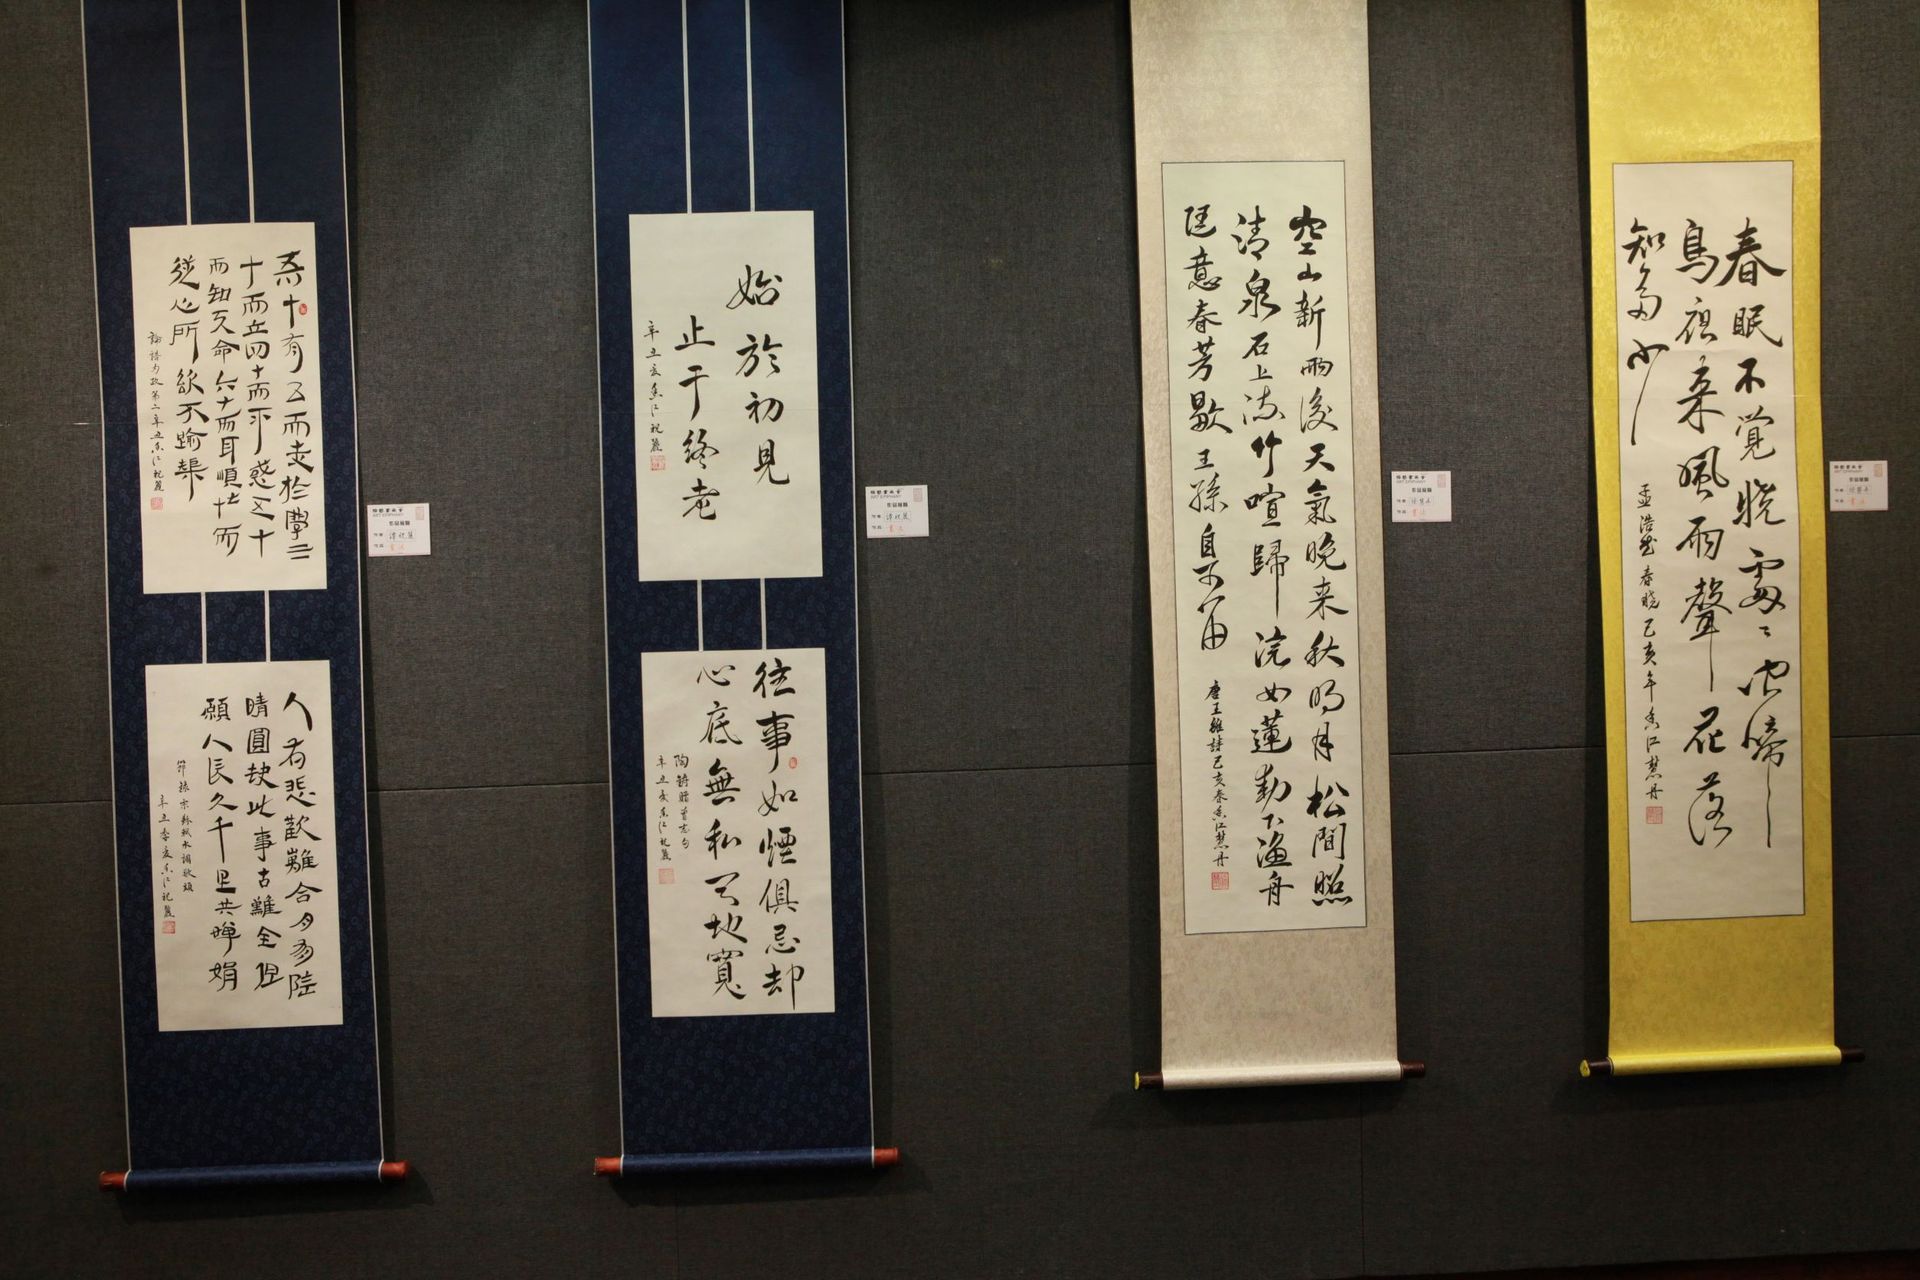 吾十有五而志於學三
十而立四十而不惑五十
而知天命六十而耳順七十而
從心所欲不踰矩
論語為政第二辛丑香江祝麗
人有悲歡離合月有陰
晴圓缺此事古難全但
願人長久千里共嬋娟
節錄宋蘇軾水調歌頭
辛丑季夏香江祝麗
ART EPIPHANY
作者 譚祝麗
作品 書法
始於初見
止于終老
辛丑夏香江祝麗
往事如煙俱忘却
心底無私天地寬
陶鑄贈曾志句
辛丑夏香江祝麗
ART EPIPHANY
作者 譚祝麗
作品 書法
空山新雨後天氣晚来秋明月松間照
清泉石上流竹喧歸浣女蓮動下漁舟
随意春芳歇王孫自可留
唐王維詩己亥春香江慧丹
ART EPIPHANY
作品 書法
春眠不覺曉處々聞啼
鳥夜来風雨聲花落
知多少
孟浩然春曉己亥年香江慧丹